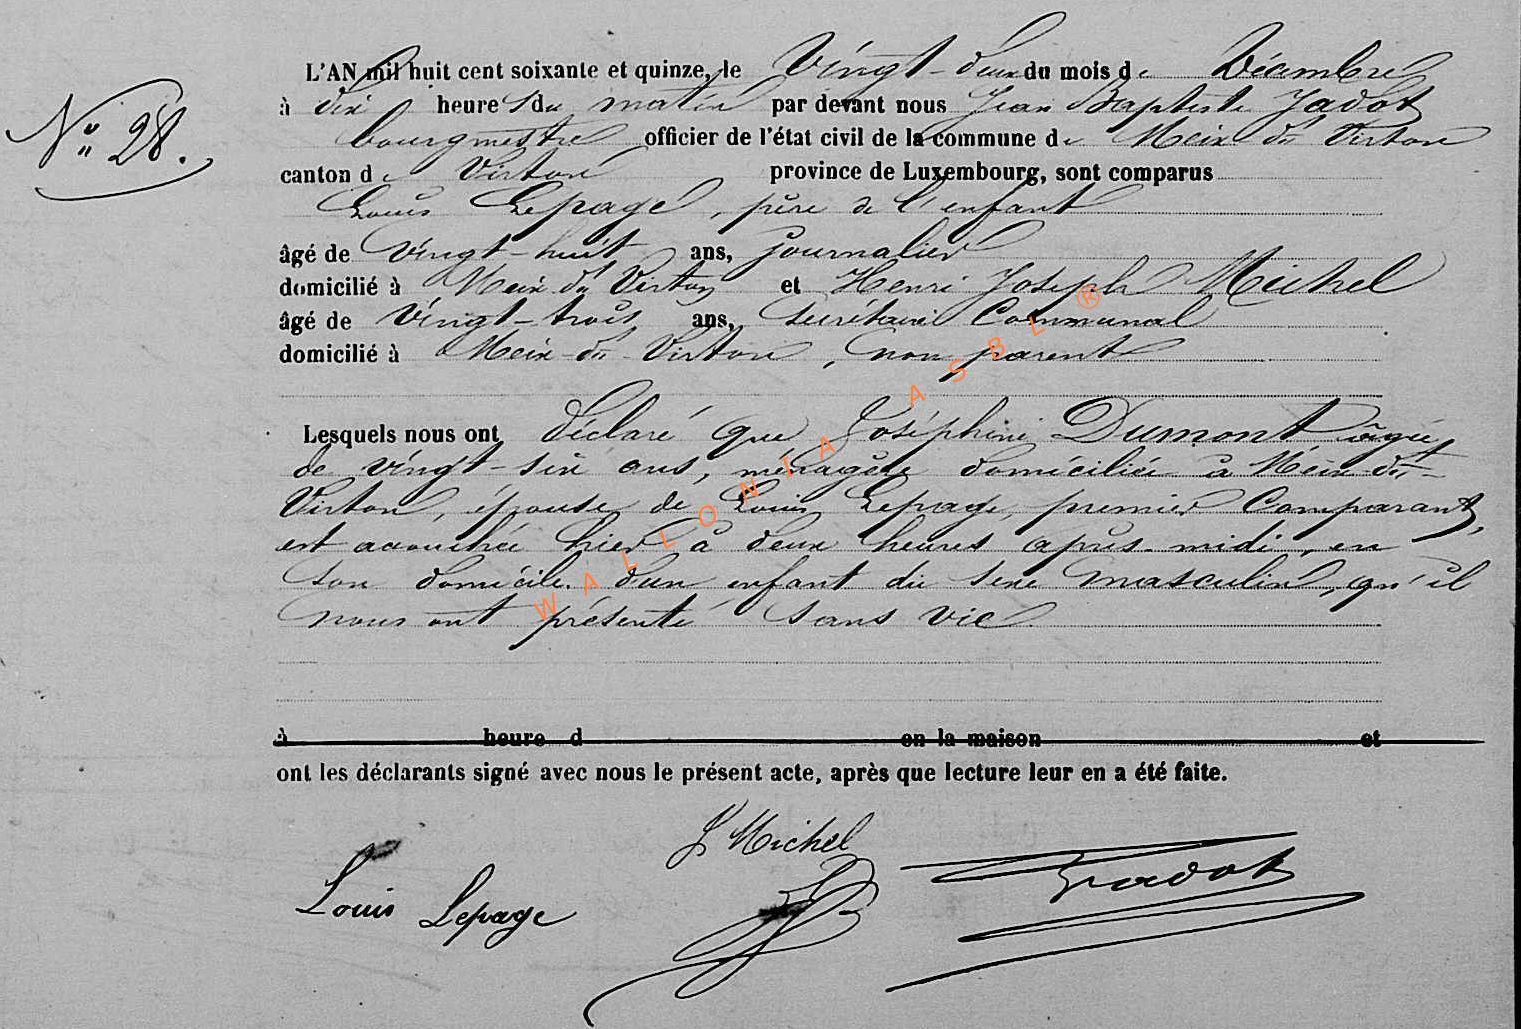 N° 28.
L'AN mil huit cent soixante et quinze, le Vingt-deux du mois de Décembre
à dix heures du matin par devant nous Jean Baptiste Jadot
bourgmestre officier de l'état civil de la commune de Meix dt Virton
canton de Virton province de Luxembourg, sont comparus
Louis Lepage, père de l'enfant
âgé de vingt-huit ans, journalier
domicilié à Meix dt Virton et Henri Joseph Michel
âgé de Vingt-trois ans, secrétaire Communal
domicilié à Meix-dt-Virton, non parent
Lesquels nous ont déclaré que Joséphine Dumont âgée
de vingt-six ans, ménagère domiciliée à Meix-dt-
Virton, épouse de Louis Lepage, premier Comparant,
est accouchée hier à deux heures après-midi, en
son domicile. d'un enfant du sexe masculin, qu'il
nous ont présenté sans vie.
à heure d en la maison et
ont les déclarants signé avec nous le présent acte, après que lecture leur en a été faite.
J Michel
Jadot
Louis Lepage
WALLONIA ASBL ®